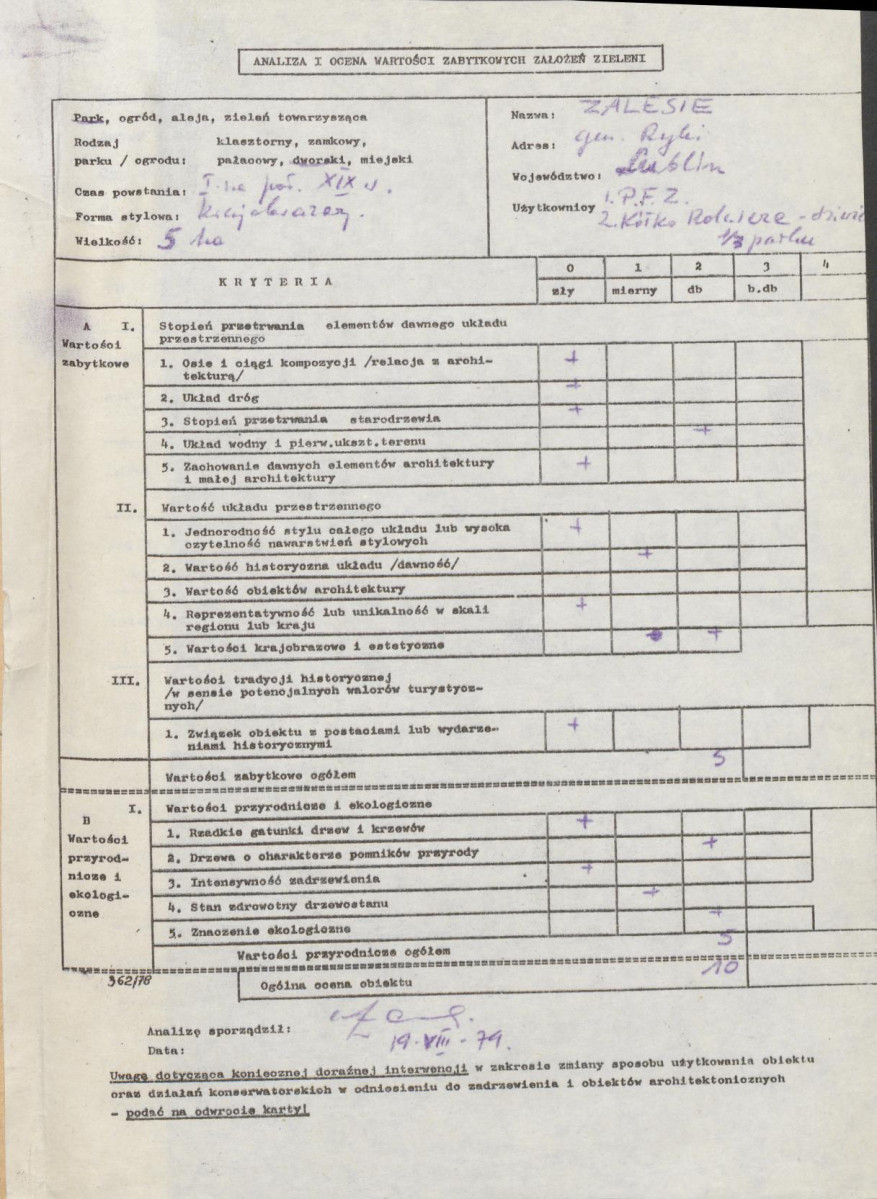 ANALIZA I OCENA WARTOŚCI ZABYTKOWYCH ZAŁOŻEŃ ZIELENI
Park, ogród, aleja, zieleń towarzysząca
Rodzaj klasztorny, zamkowy,
parku / ogrodu: pałacowy, dworski, miejski
Czas powstania: I-sza poł. XIX w.
Forma stylowa: krajobrazowy.
Wielkość: 5 ha
Nazwa: ZALESIE
Adres: gm. Ryki
Województwo: Lublin
Użytkownicy 1. P.F.Z.
2. Kółko Rolnicze -
1/3 parku
KRYTERIA 0 1 2 3 4
zły mierny db b.db
A I. Stopień przetrwania elementów dawnego układu
Wartości przestrzennego
zabytkowe
1. Osie i ciągi kompozycji /relacja z archi- +
tekturą/
2. Układ dróg +
3. Stopień przetrwania starodrzewia +
4. Układ wodny i pierw.ukszt.terenu +
5. Zachowanie dawnych elementów architektury +
i małej architektury
II. Wartość układu przestrzennego
1. Jednorodność stylu całego układu lub wysoka +
czytelność nawarstwień stylowych
2. Wartość historyczna układu /dawność/ +
3. Wartość obiektów architektury
4. Reprezentatywność lub unikalność w skali +
regionu lub kraju
5. Wartości krajobrazowe i estetyczne +
III. Wartości tradycji historycznej
/w sensie potencjalnych walorów turystycz-
nych/
1. Związek obiektu z postaciami lub wydarze- +
niami historycznymi
Wartości zabytkowe ogółem 5
B I. Wartości przyrodnicze i ekologiczne
Wartości
przyrod-
nicze i
ekologi-
czne
1. Rzadkie gatunki drzew i krzewów +
2. Drzewa o charakterze pomników przyrody +
3. Intensywność zadrzewienia +
4. Stan zdrowotny drzewostanu +
5. Znaczenie ekologiczne +
Wartości przyrodnicze ogółem 5
362/78 Ogólna ocena obiektu 10
Analizę sporządził:
Data: 19.VIII.79.
Uwagę dotyczącą koniecznej doraźnej interwencji w zakresie zmiany sposobu użytkowania obiektu
oraz działań konserwatorskich w odniesieniu do zadrzewienia i obiektów architektonicznych
- podać na odwrocie karty!